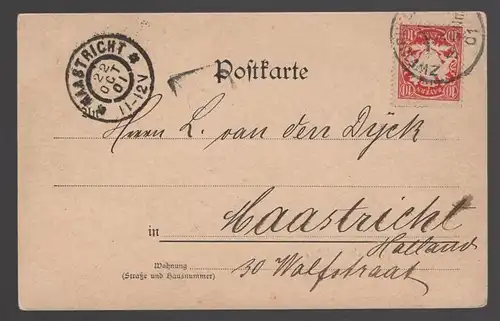 MAASTRICHT
22
OCT
01
11-12V
Postkarte
01
10 BAYERN 10
Herrn L. van den Dÿck
in Maastricht
Holland
Wohnung
(Straße und Hausnummer)
30 Wolfstraat